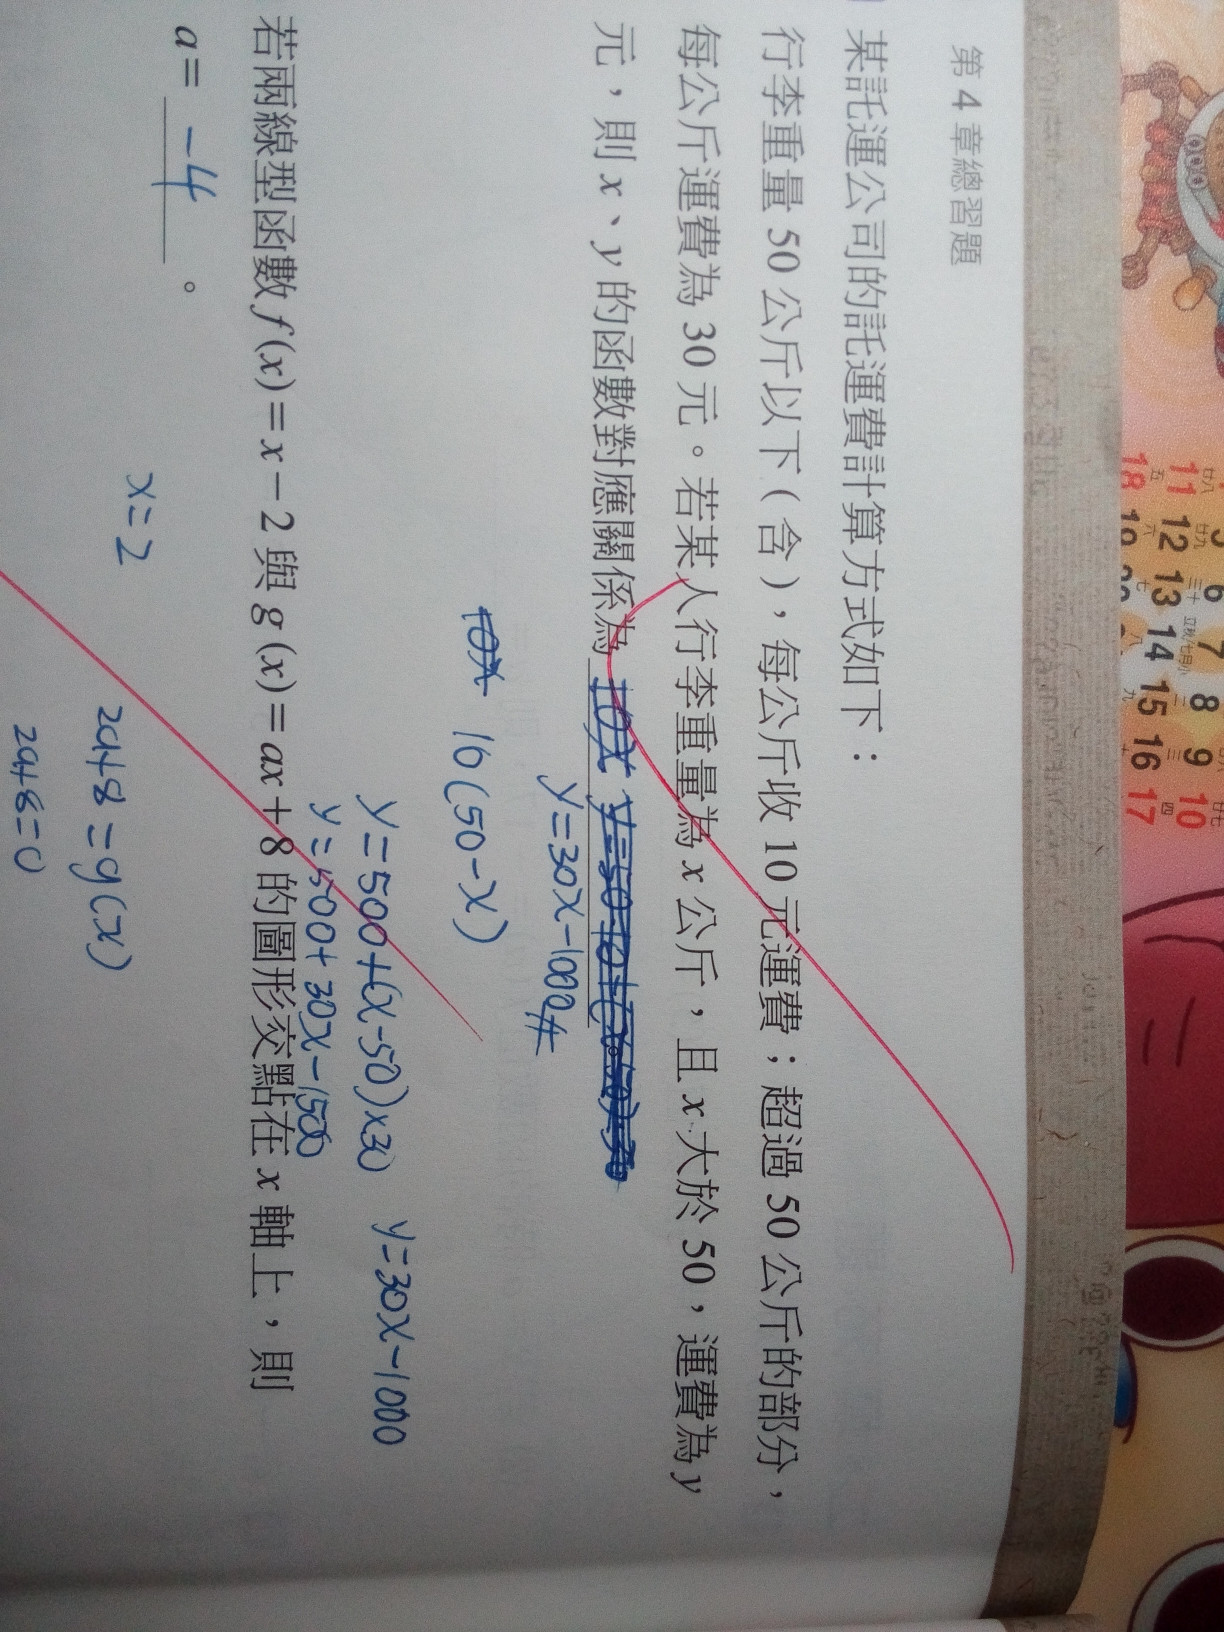 第4章總習題
某託運公司的託運費計算方式如下：
行李重量50公斤以下（含），每公斤收10元運費；超過50公斤的部分，
每公斤運費為30元。若某人行李重量為x公斤，且x大於50，運費為y
元，則x、y的函數對應關係為
y=30x-1000#
10x
10(50-x)
y=500+(x-50)×30
y=30x-1000
y=500+30x-1500
若兩線型函數f(x)=x-2與g(x)=ax+8的圖形交點在x軸上，則
a= -4 。
x=2
2a+8=g(x)
2a+8=0
5
6
7
8
9
10
11
12
13
14
15
16
17
18
19